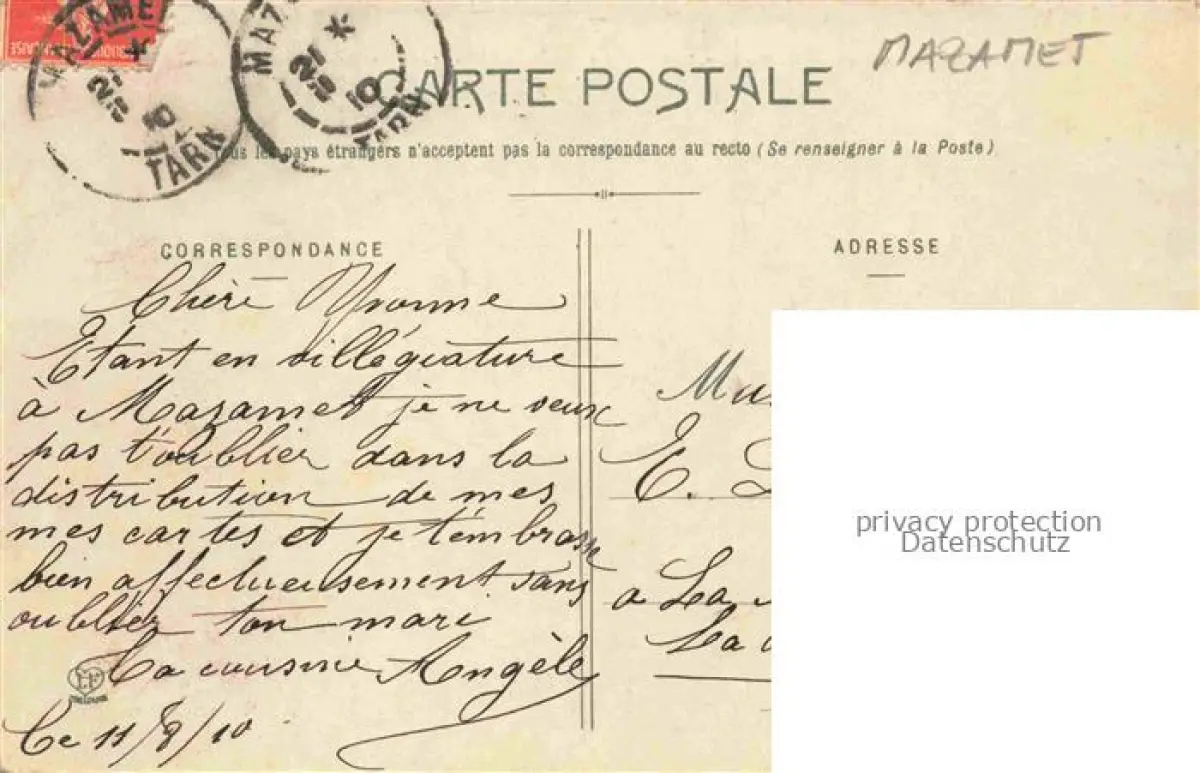 MAZAMET
TARN
MAZ
TARN
MAZAMET
CARTE POSTALE
Tous les pays étrangers n'acceptent pas la correspondance au recto (Se renseigner à la Poste)
CORRESPONDANCE
Chère Yvonne
Etant en villégiature
à Mazamet je ne veux
pas t'oublier dans la
distribution de mes
mes cartes et je t'embrasse
bien affectueusement sans
oublier ton mari
Ta cousine Angèle
Le 11/8/10
ADRESSE
E.
a La
La
privacy protection
Datenschutz